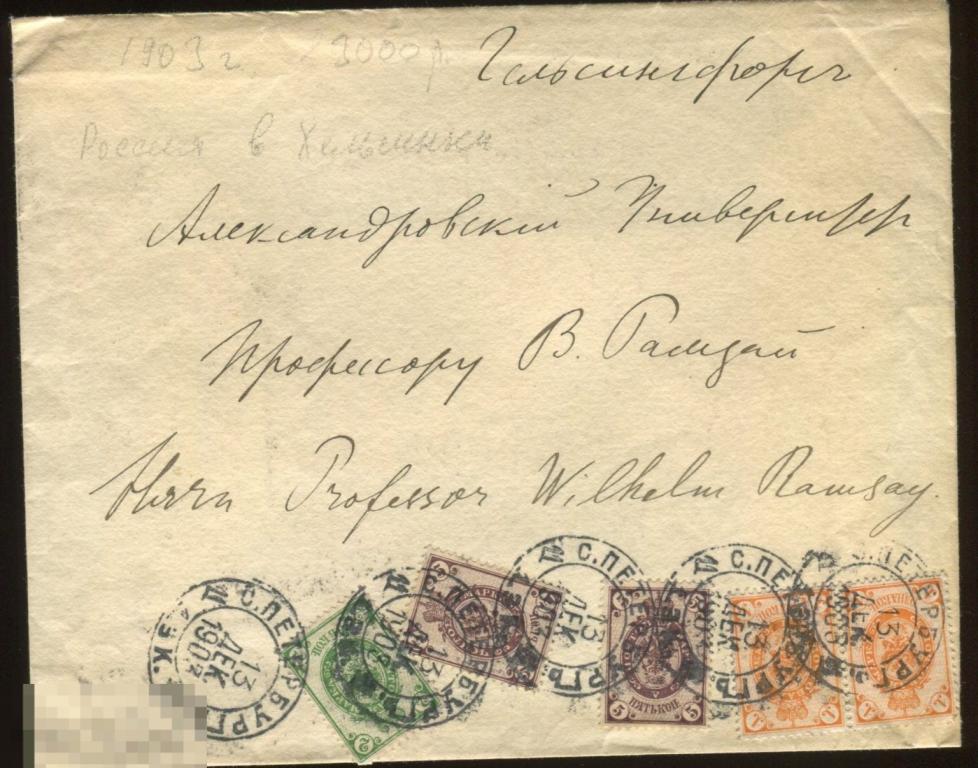 1903 г. 3000 р.
Гельсингфорсъ
Россия в Хельсинки
Александровскій Университетъ
Профессору В. Рамзай
Herrn Professor Wilhelm Ramsay.
С.ПЕТЕРБУРГЪ 13 ДЕК 1903
С.ПЕТЕРБУРГЪ 13 ДЕК 1903
С.ПЕТЕРБУРГЪ 13 ДЕК 1903
С.ПЕТЕРБУРГЪ 13 ДЕК 1903
С.ПЕТЕРБУРГЪ 13 ДЕК 1903
2
5 ПЯТЬ КОП. 5
1 1
1 1